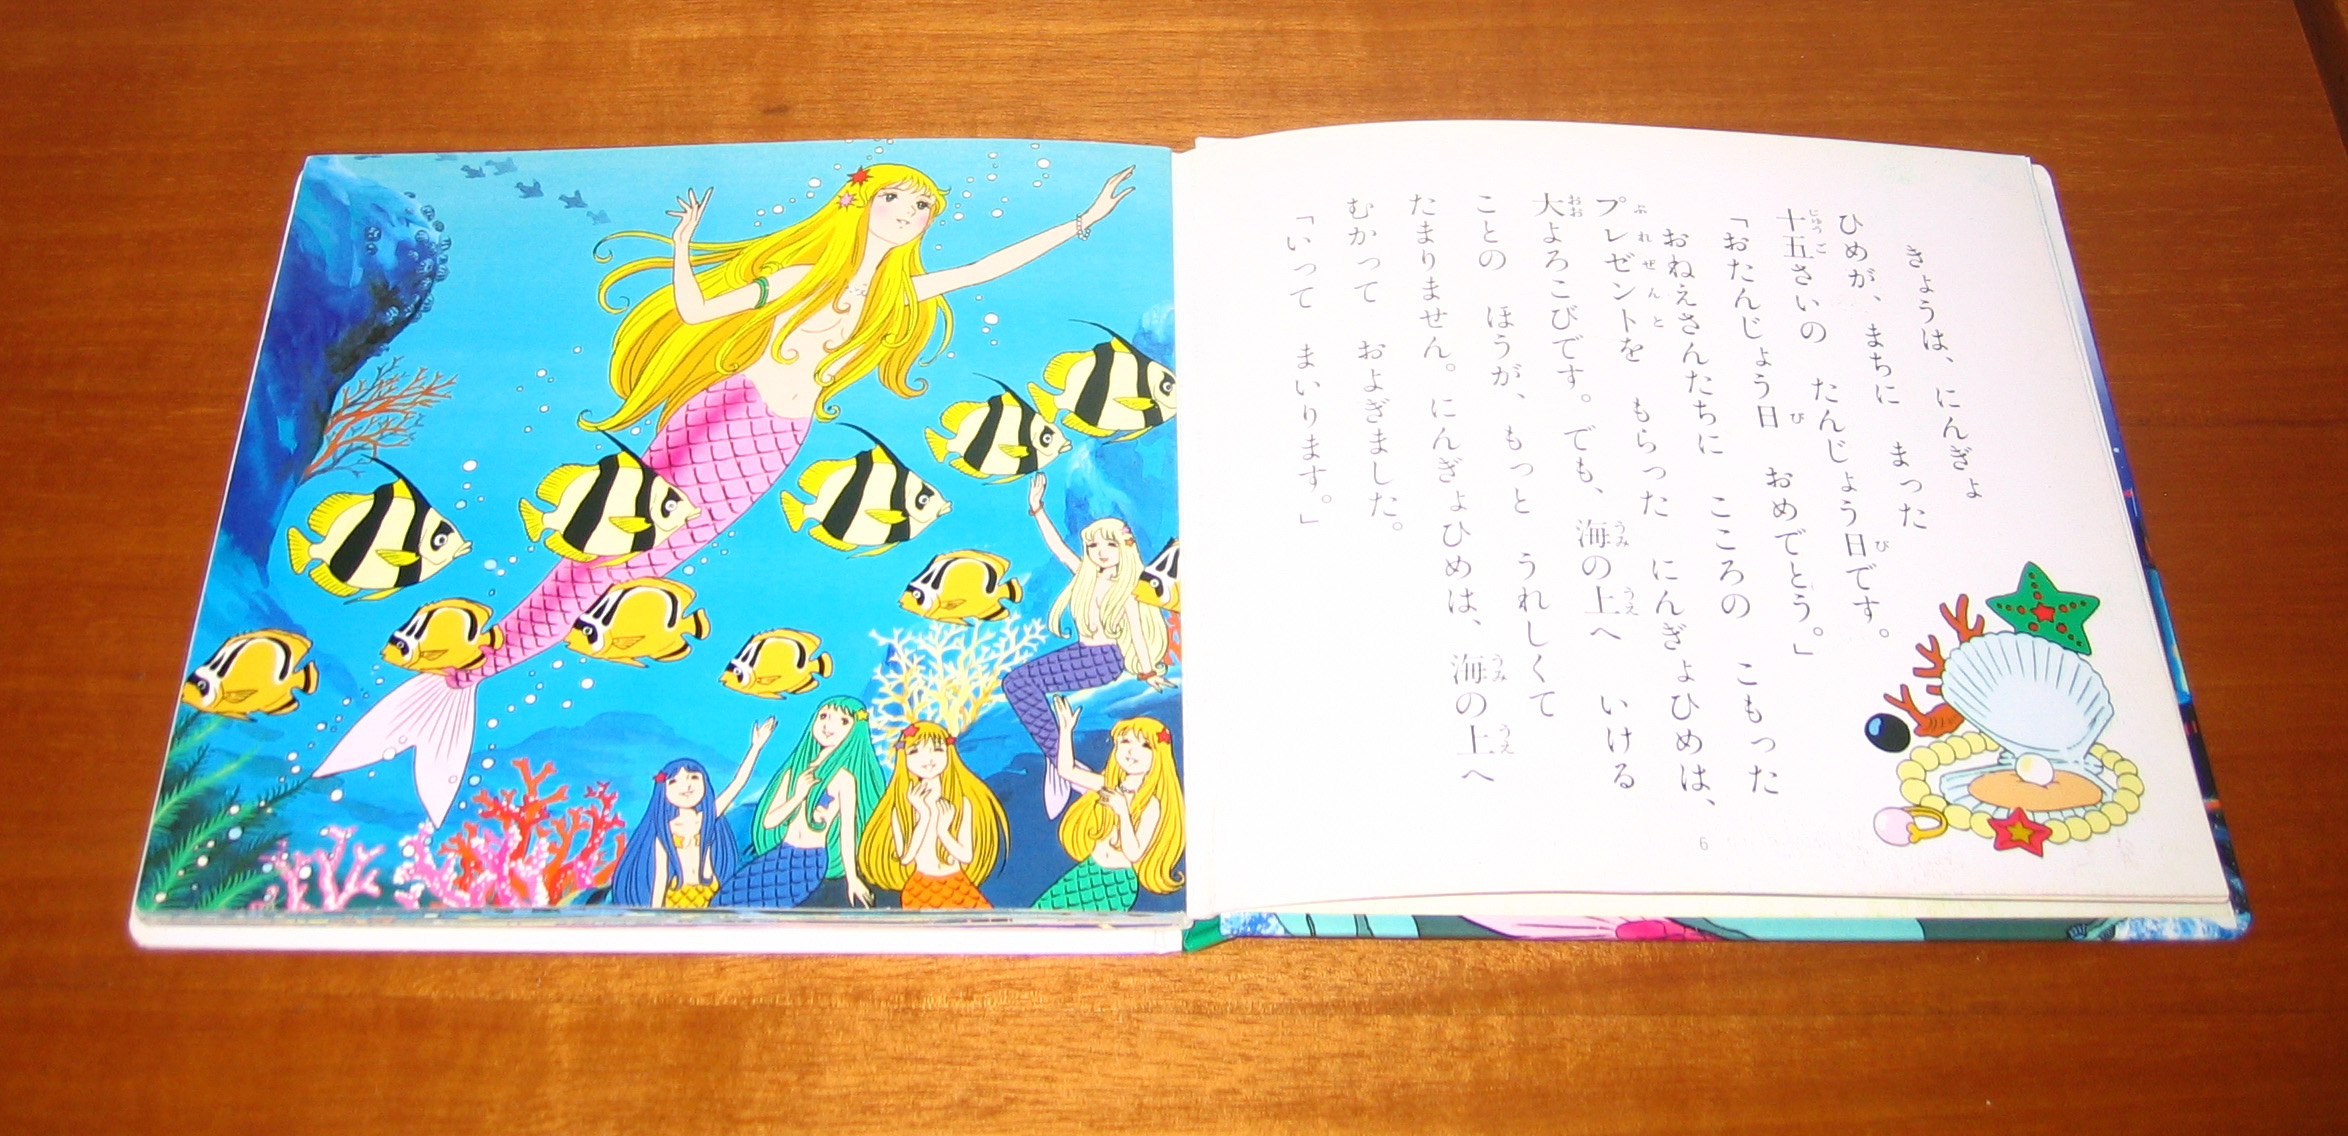 きょうは、にんぎょ
ひめが、まちに まった
十五さいの たんじょう日です。
「おたんじょう日 おめでとう。」
おねえさんたちに こころの こもった
プレゼントを もらった にんぎょひめは、
大よろこびです。でも、海の上へ いける
ことの ほうが、もっと うれしくて
たまりません。にんぎょひめは、海の上へ
むかって およぎました。
「いって まいります。」
6